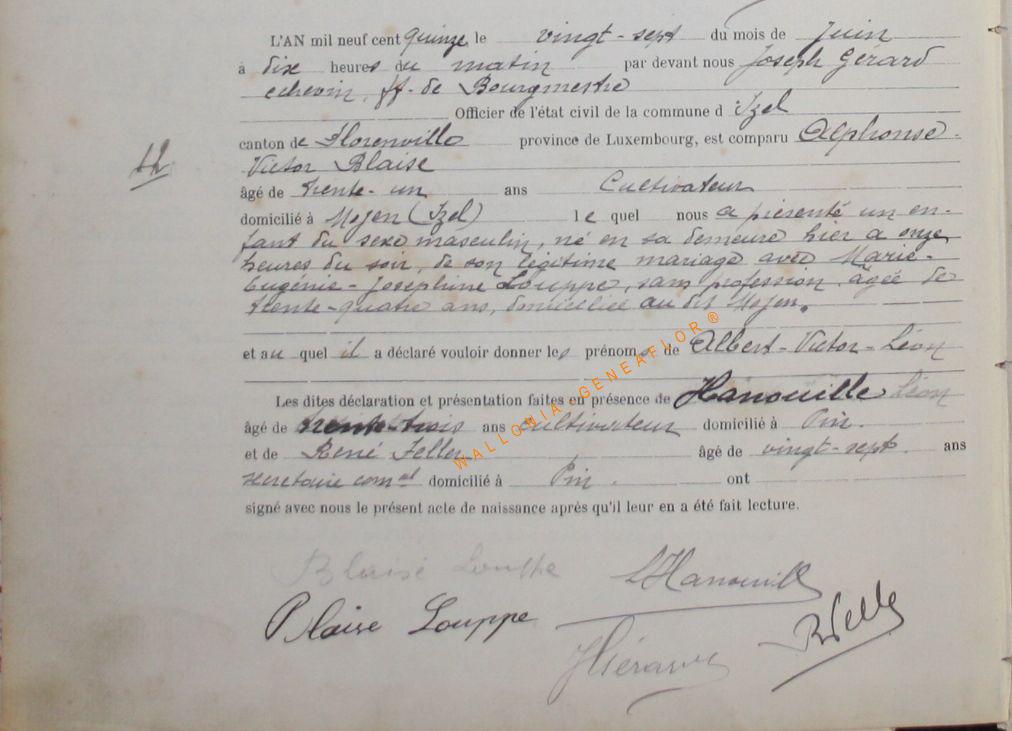 L'AN mil neuf cent quinze, le vingt-sept du mois de Juin
à dix heures du matin par devant nous Joseph Gérard
echevin, ff. de Bourgmestre
Officier de l'état civil de la commune d Izel
canton de Florenville province de Luxembourg, est comparu Alphonse-
Victor Blaise
12
âgé de trente-un ans Cultivateur
domicilié à Mojen (Izel) le quel nous a présenté un en-
fant du sexe masculin, né en sa demeure hier a onze
heures du soir, de son légitime mariage avec Marie-
Eugénie-Joséphine Louppe, sans profession, âgée de
trente-quatre ans, domiciliée au dit Mojen.
et au quel il a déclaré vouloir donner les prénoms de Albert-Victor-Léon
Les dites déclaration et présentation faites en présence de Hanouille Léon
âgé de trente-trois ans cultivateur domicilié à Pin.
et de René Feller âgé de vingt-sept. ans
secretaire comal domicilié à Pin. ont
signé avec nous le présent acte de naissance après qu'il leur en a été fait lecture.
WALLONIA-GENEAFLOR®
Blaise Louppe LHanouille
Blaise Louppe RFeller